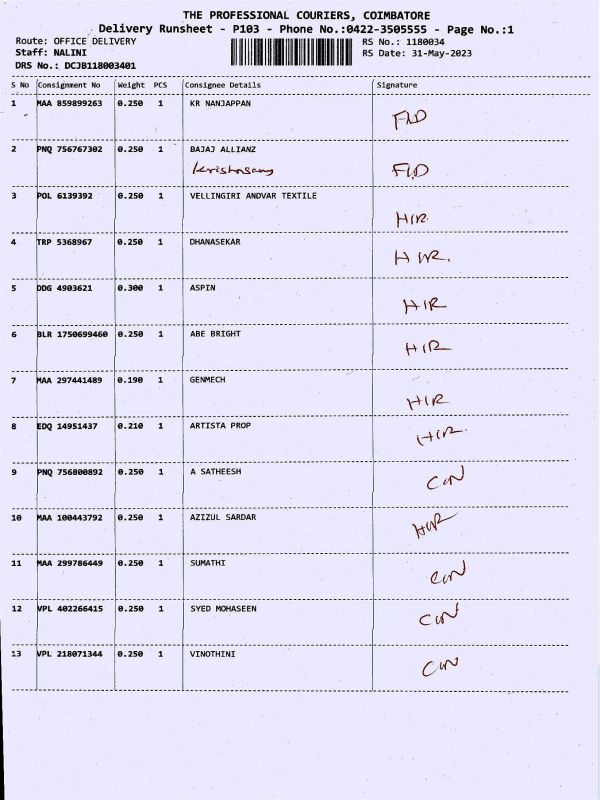 THE PROFESSIONAL COURIERS, COIMBATORE
Delivery Runsheet - P103 - Phone No.:0422-3505555 - Page No.:1
Route: OFFICE DELIVERY RS No.: 1180034
Staff: NALINI RS Date: 31-May-2023
DRS No.: DCJB118003401
S No Consignment No Weight PCS Consignee Details Signature
1 MAA 859899263 0.250 1 KR NANJAPPAN
FND
2 PNQ 756767302 0.250 1 BAJAJ ALLIANZ
FND
3 POL 6139392 0.250 1 VELLINGIRI ANDVAR TEXTILE
HIR
4 TRP 5368967 0.250 1 DHANASEKAR
HIR
5 DDG 4903621 0.300 1 ASPIN
HIR
6 BLR 1750699460 0.250 1 ABE BRIGHT
HIR
7 MAA 297441489 0.190 1 GENMECH
HIR
8 EDQ 14951437 0.210 1 ARTISTA PROP
HIR
9 PNQ 756800892 0.250 1 A SATHEESH
10 MAA 100443792 0.250 1 AZIZUL SARDAR
11 MAA 299786449 0.250 1 SUMATHI
12 VPL 402266415 0.250 1 SYED MOHASEEN
13 VPL 218071344 0.250 1 VINOTHINI